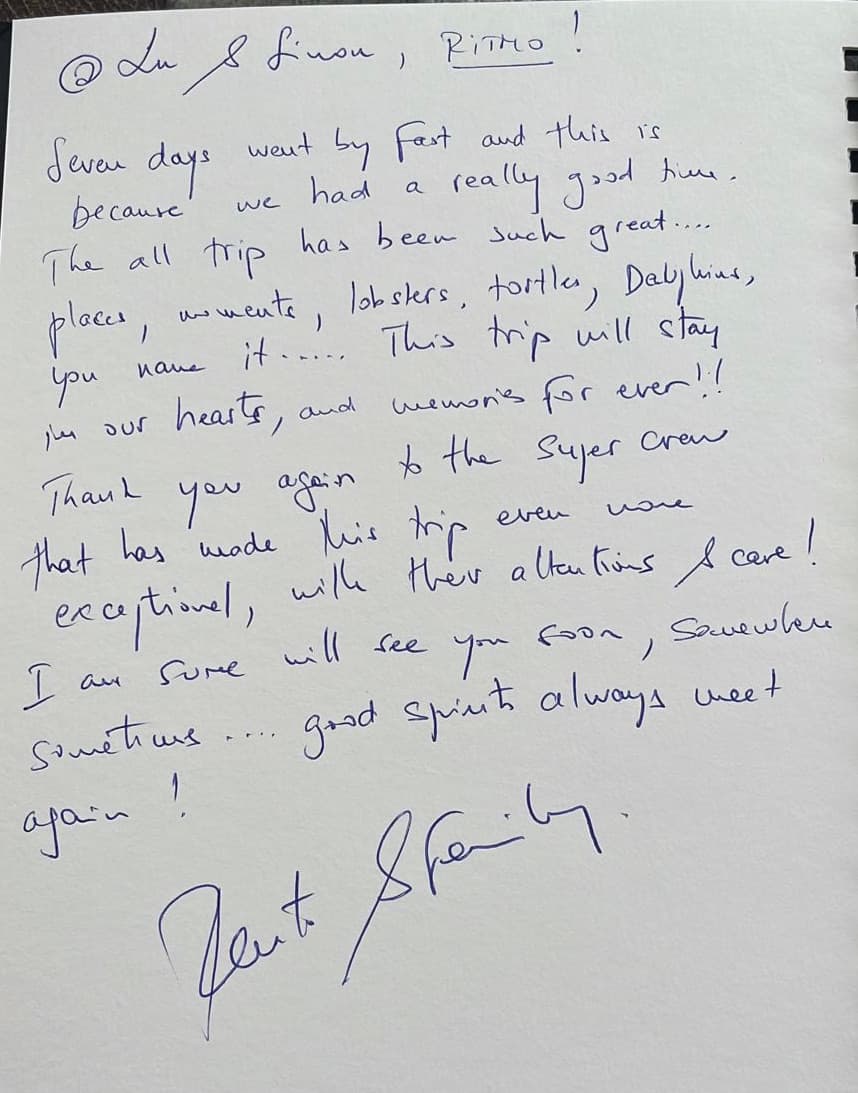 @ Lu & Simon, RITMO!
Seven days went by fast and this is
because we had a really good time.
The all trip has been such great....
places, moments, lobsters, tortles, Dalphins,
you name it...... This trip will stay
in our hearts, and memories for ever!!
Thank you again to the super crew
that has made this trip even more
exceptionel, with their attentions & care!
I am sure will see you soon, Somewhere
sometimes .... good spirits always meet
again!
& Family.